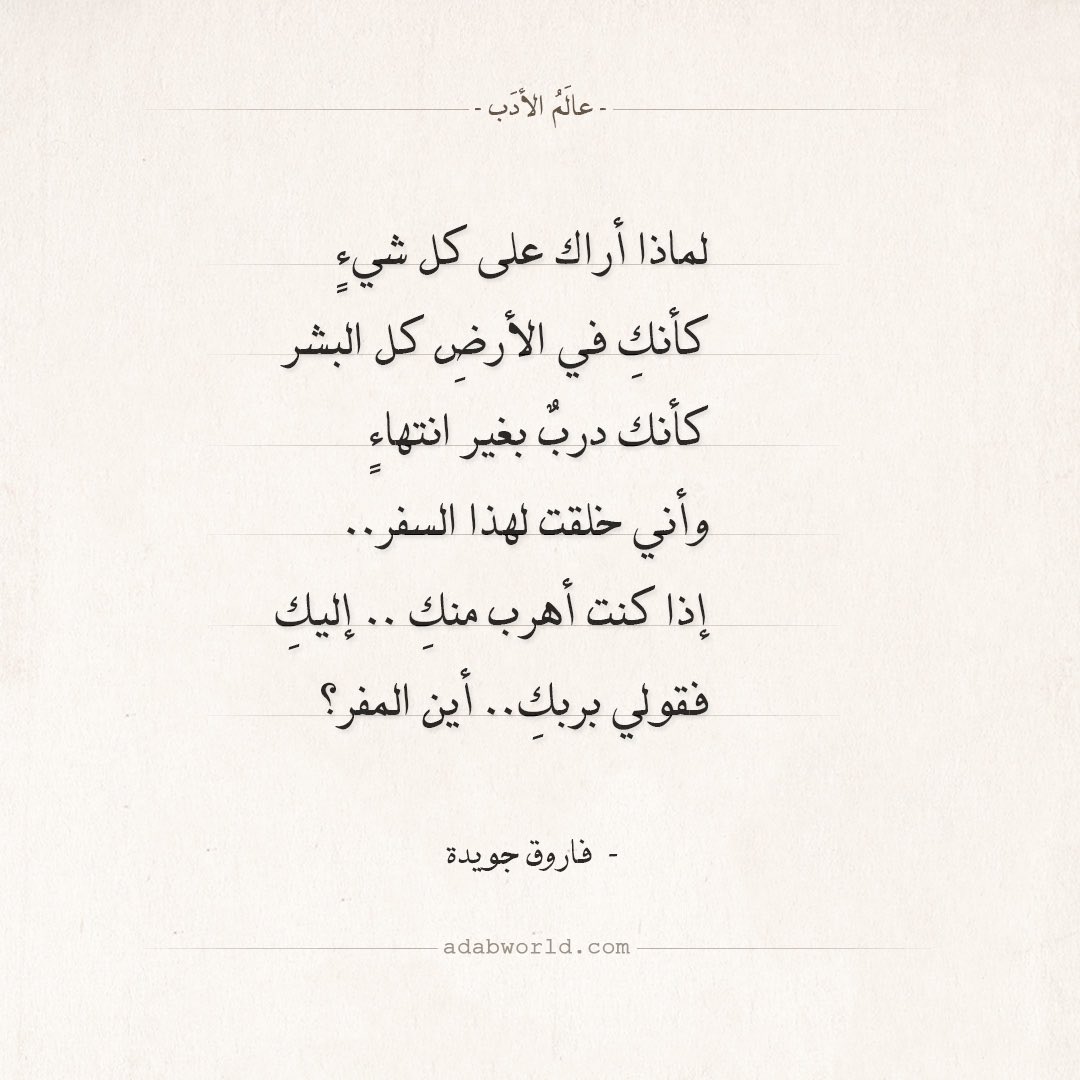 - عالَمُ الأدَب -
لماذا أراك على كل شيءٍ
كأنكِ في الأرضِ كل البشر
كأنك دربٌ بغير انتهاءٍ
وأني خلقت لهذا السفر..
إذا كنت أهرب منكِ .. إليكِ
فقولي بربكِ.. أين المفر؟
- فاروق جويدة
adabworld.com